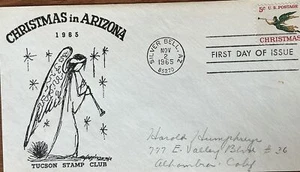 CHRISTMAS in ARIZONA
1965
TUCSON STAMP CLUB
SILVER BELL, AZ.
NOV
2
1965
85270
5¢ U.S. POSTAGE
CHRISTMAS
FIRST DAY OF ISSUE
Harold Humphreys
777 E. Valley Blvd # 36
Alhambra - Calif